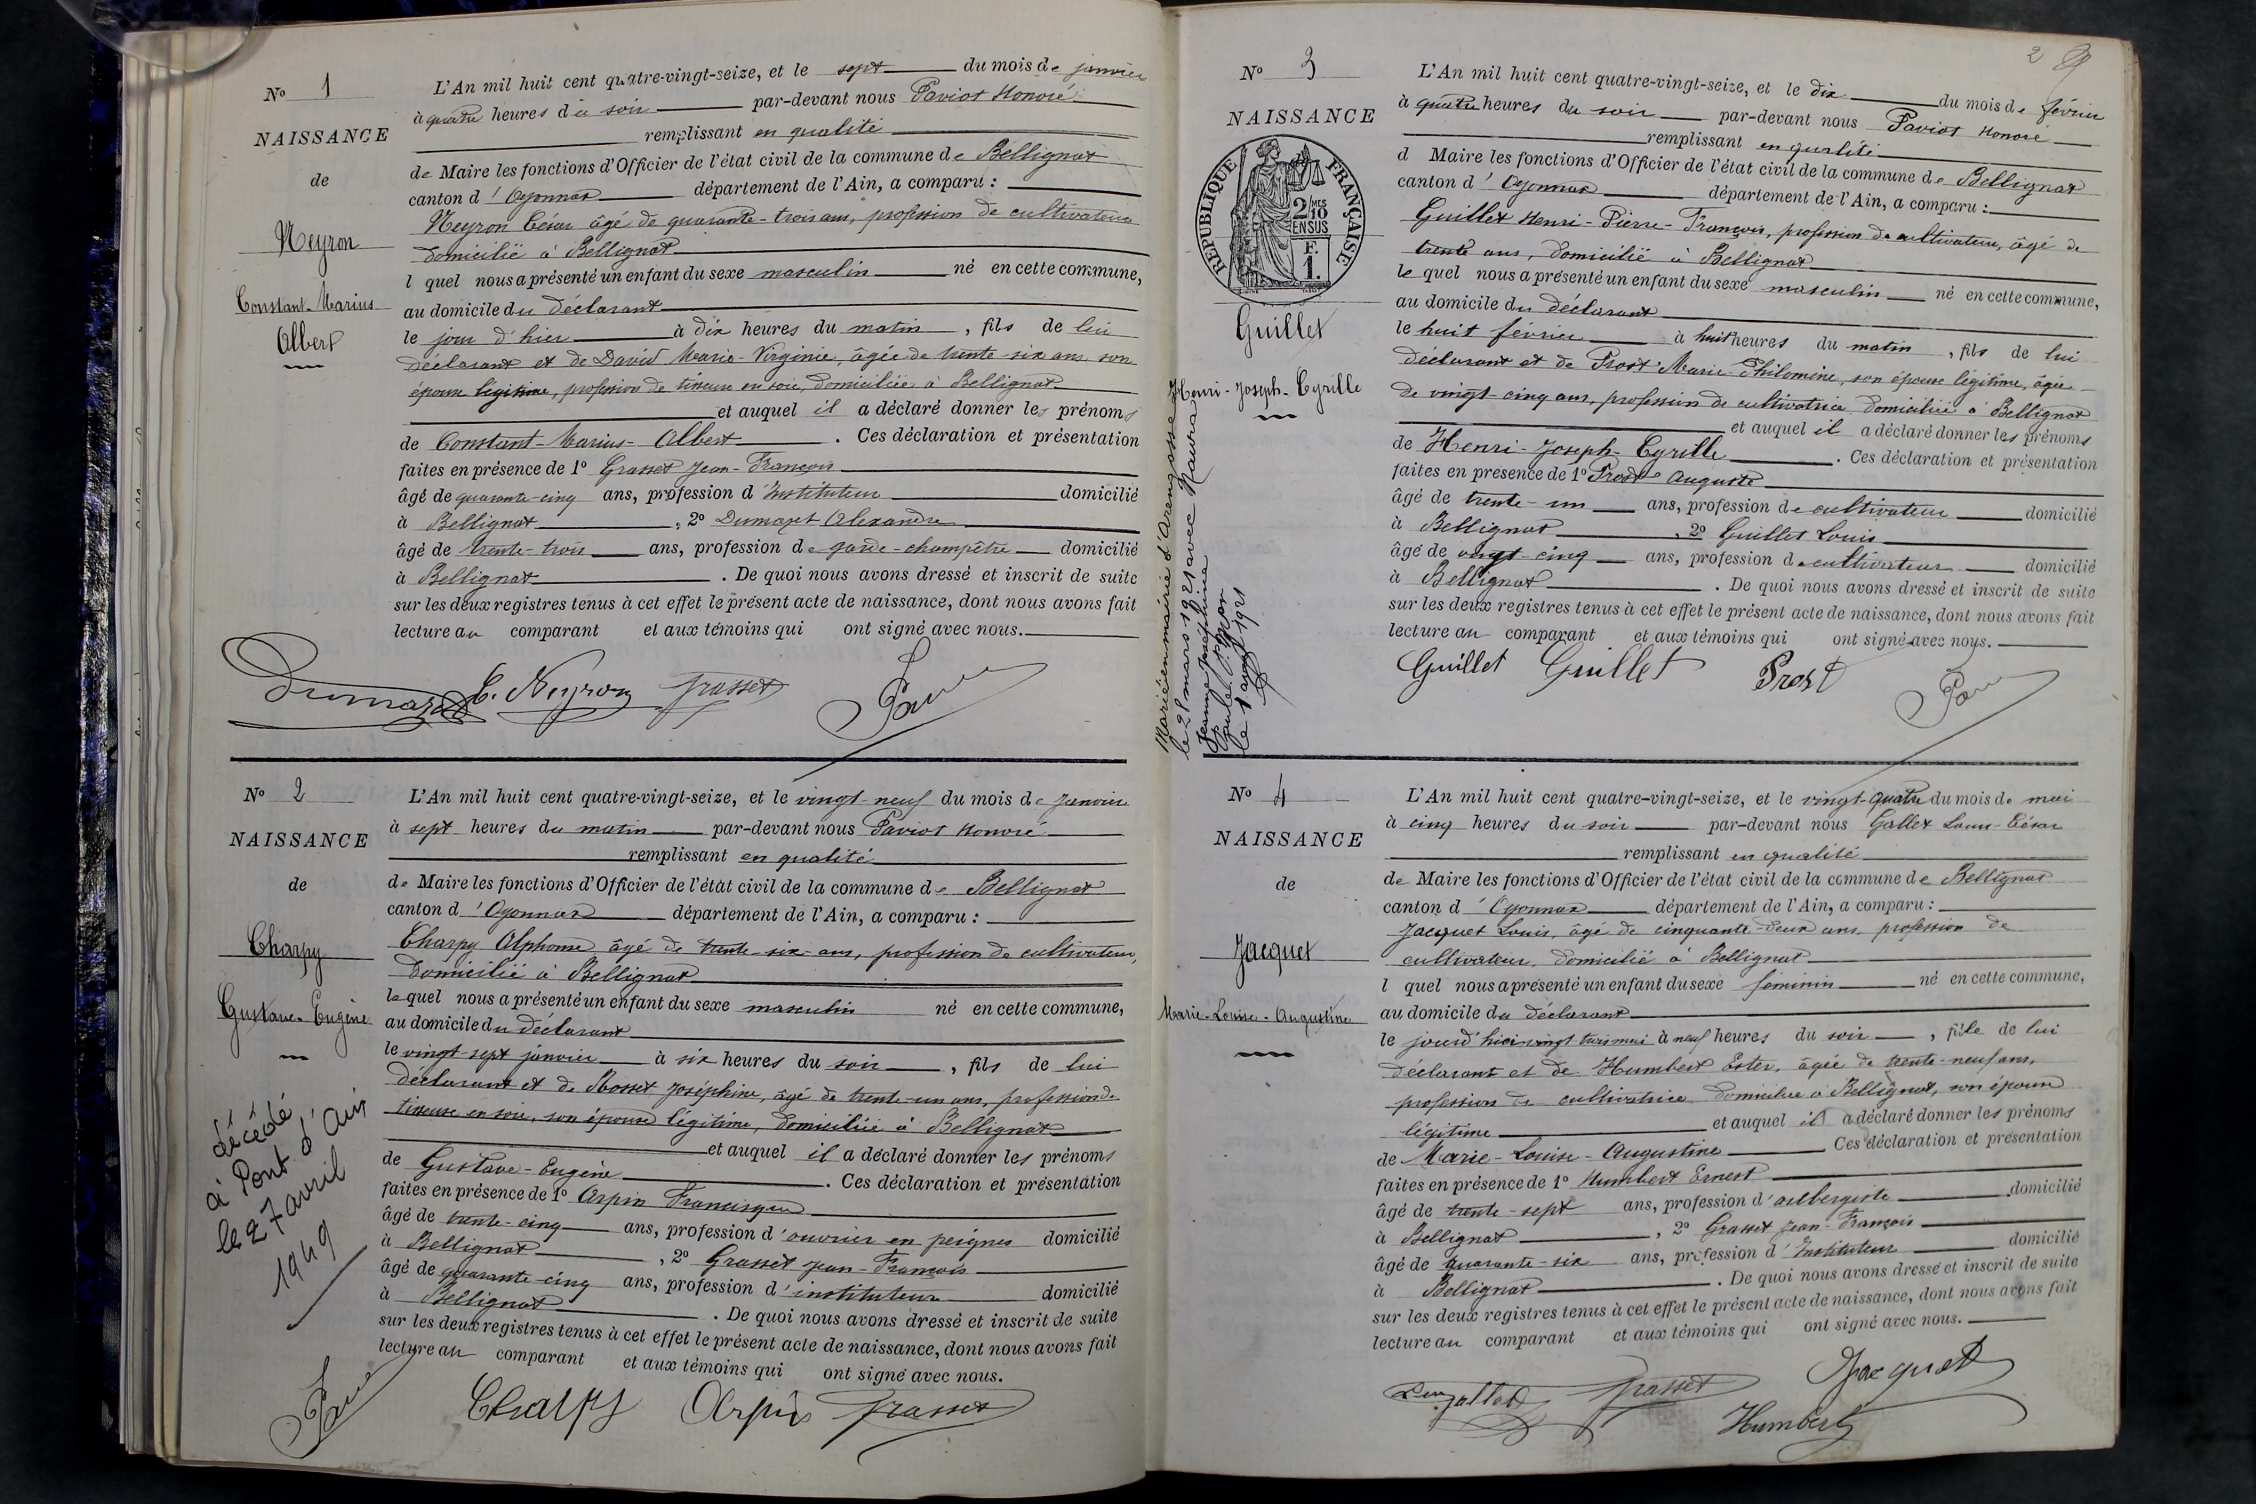 No 1
NAISSANCE
de
Neyron
Constant-Marius
Albert
L'An mil huit cent quatre-vingt-seize, et le sept du mois de janvier
à quatre heures du soir par-devant nous Paviot Honoré
remplissant en qualité
de Maire les fonctions d'Officier de l'état civil de la commune de Bellignat
canton d'Oyonnax département de l'Ain, a comparu :
Neyron César âgé de quarante-trois ans, profession de cultivateur
domicilié à Bellignat
l quel nous a présenté un enfant du sexe masculin né en cette commune,
au domicile du déclarant
le jour d'hier à dix heures du matin, fils de lui
déclarant et de David Marie-Virginie, âgée de trente-six ans son
épouse légitime, profession de tisseuse en soie, domiciliée à Bellignat
et auquel il a déclaré donner les prénoms
de Constant-Marius-Albert. Ces déclaration et présentation
faites en présence de 1º Grasset Jean-François
âgé de quarante-cinq ans, profession d'Instituteur domicilié
à Bellignat, 2º Dumazet Alexandre
âgé de trente-trois ans, profession de garde-champêtre domicilié
à Bellignat. De quoi nous avons dressé et inscrit de suite
sur les deux registres tenus à cet effet le présent acte de naissance, dont nous avons fait
lecture au comparant et aux témoins qui ont signé avec nous.
Dumazet C. Neyron Grasset Pavi
No 2
NAISSANCE
de
Charpy
Gustave-Eugène
décédé
à Pont d'Ain
le 27 avril
1949
L'An mil huit cent quatre-vingt-seize, et le vingt-neuf du mois de janvier
à sept heures du matin par-devant nous Paviot Honoré
remplissant en qualité
de Maire les fonctions d'Officier de l'état civil de la commune de Bellignat
canton d'Oyonnax département de l'Ain, a comparu :
Charpy Alphonse âgé de trente-six ans, profession de cultivateur,
domicilié à Bellignat
lequel nous a présenté un enfant du sexe masculin né en cette commune,
au domicile du déclarant
le vingt-sept janvier à six heures du soir, fils de lui
déclarant et de Mosset Joséphine, âgé de trente-un ans, profession de
tisseuse en soie, son épouse légitime, domiciliée à Bellignat
et auquel il a déclaré donner les prénoms
de Gustave-Eugène. Ces déclaration et présentation
faites en présence de 1º Arpin Francisque
âgé de trente-cinq ans, profession d'ouvrier en peignes domicilié
à Bellignat, 2º Grasset Jean-François
âgé de quarante-cinq ans, profession d'instituteur domicilié
à Bellignat. De quoi nous avons dressé et inscrit de suite
sur les deux registres tenus à cet effet le présent acte de naissance, dont nous avons fait
lecture au comparant et aux témoins qui ont signé avec nous.
Pavi Charpy Arpin Grasset
2
No 3
NAISSANCE
RÉPUBLIQUE FRANÇAISE
2 MES
/10
EN SUS
F.
1.
Guillet
Henri-Joseph-Cyrille
Marié en mairie d'Arengosse
le 28 mars 1921 avec
Jeanne Joséphine
le 1 avril 1921
L'An mil huit cent quatre-vingt-seize, et le dix du mois de février
à quatre heures du soir par-devant nous Paviot Honoré
remplissant en qualité
d Maire les fonctions d'Officier de l'état civil de la commune de Bellignat
canton d'Oyonnax département de l'Ain, a comparu :
Guillet Henri-Pierre-François, profession de cultivateur, âgé de
trente ans, domicilié à Bellignat
le quel nous a présenté un enfant du sexe masculin né en cette commune,
au domicile du déclarant
le huit février à huit heures du matin, fils de lui
déclarant et de Prost Marie-Philomine, son épouse légitime, âgée
de vingt-cinq ans, profession de cultivatrice domiciliée à Bellignat
et auquel il a déclaré donner les prénoms
de Henri-Joseph-Cyrille. Ces déclaration et présentation
faites en présence de 1º Prost Auguste
âgé de trente-un ans, profession de cultivateur domicilié
à Bellignat, 2º Guillet Louis
âgé de vingt-cinq ans, profession de cultivateur domicilié
à Bellignat. De quoi nous avons dressé et inscrit de suite
sur les deux registres tenus à cet effet le présent acte de naissance, dont nous avons fait
lecture au comparant et aux témoins qui ont signé avec nous.
Guillet Guillet Prost Pavi
No 4
NAISSANCE
de
Jacquet
Marie-Louise-Augustine
L'An mil huit cent quatre-vingt-seize, et le vingt-quatre du mois de mai
à cinq heures du soir par-devant nous Gallet Louis-César
remplissant en qualité
de Maire les fonctions d'Officier de l'état civil de la commune de Bellignat
canton d'Oyonnax département de l'Ain, a comparu :
Jacquet Louis, âgé de cinquante-deux ans profession de
cultivateur, domicilié à Bellignat
l quel nous a présenté un enfant du sexe féminin né en cette commune,
au domicile du déclarant
le jourd'hier vingt trois mai à neuf heures du soir, fille de lui
déclarant et de Humbert Ester, âgée de trente-neuf ans,
profession de cultivatrice domiciliée à Bellignat, son épouse
légitime et auquel il a déclaré donner les prénoms
de Marie-Louise-Augustine Ces déclaration et présentation
faites en présence de 1º Humbert Ernest
âgé de trente-sept ans, profession d'aubergiste domicilié
à Bellignat, 2º Grasset Jean-François
âgé de quarante-six ans, profession d'Instituteur domicilié
à Bellignat. De quoi nous avons dressé et inscrit de suite
sur les deux registres tenus à cet effet le présent acte de naissance, dont nous avons fait
lecture au comparant et aux témoins qui ont signé avec nous.
Gallet Grasset Jacquet
Humbert